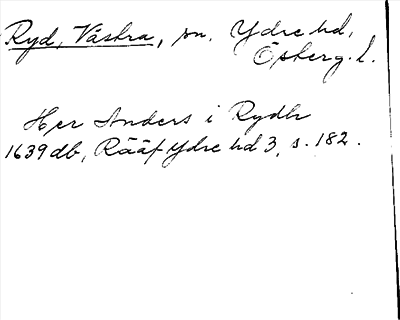 Ryd, Västra, sn. Ydre hd,
Östberg. l.
Her Anders i Rydh
1639 db, Rääf Ydre hd 3, s. 182.